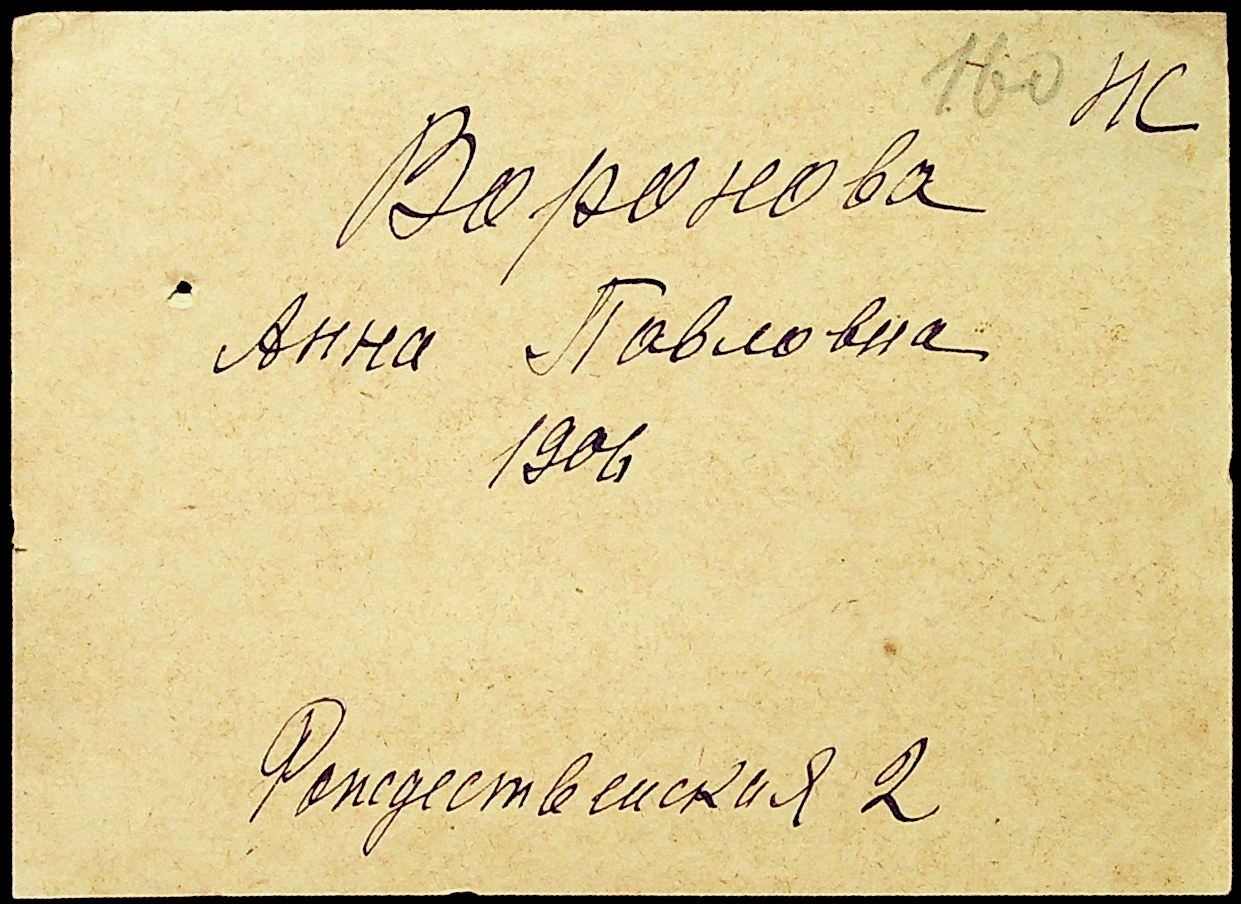 160 НС
Воронова
Анна Павловна
1906
Рождественская 2